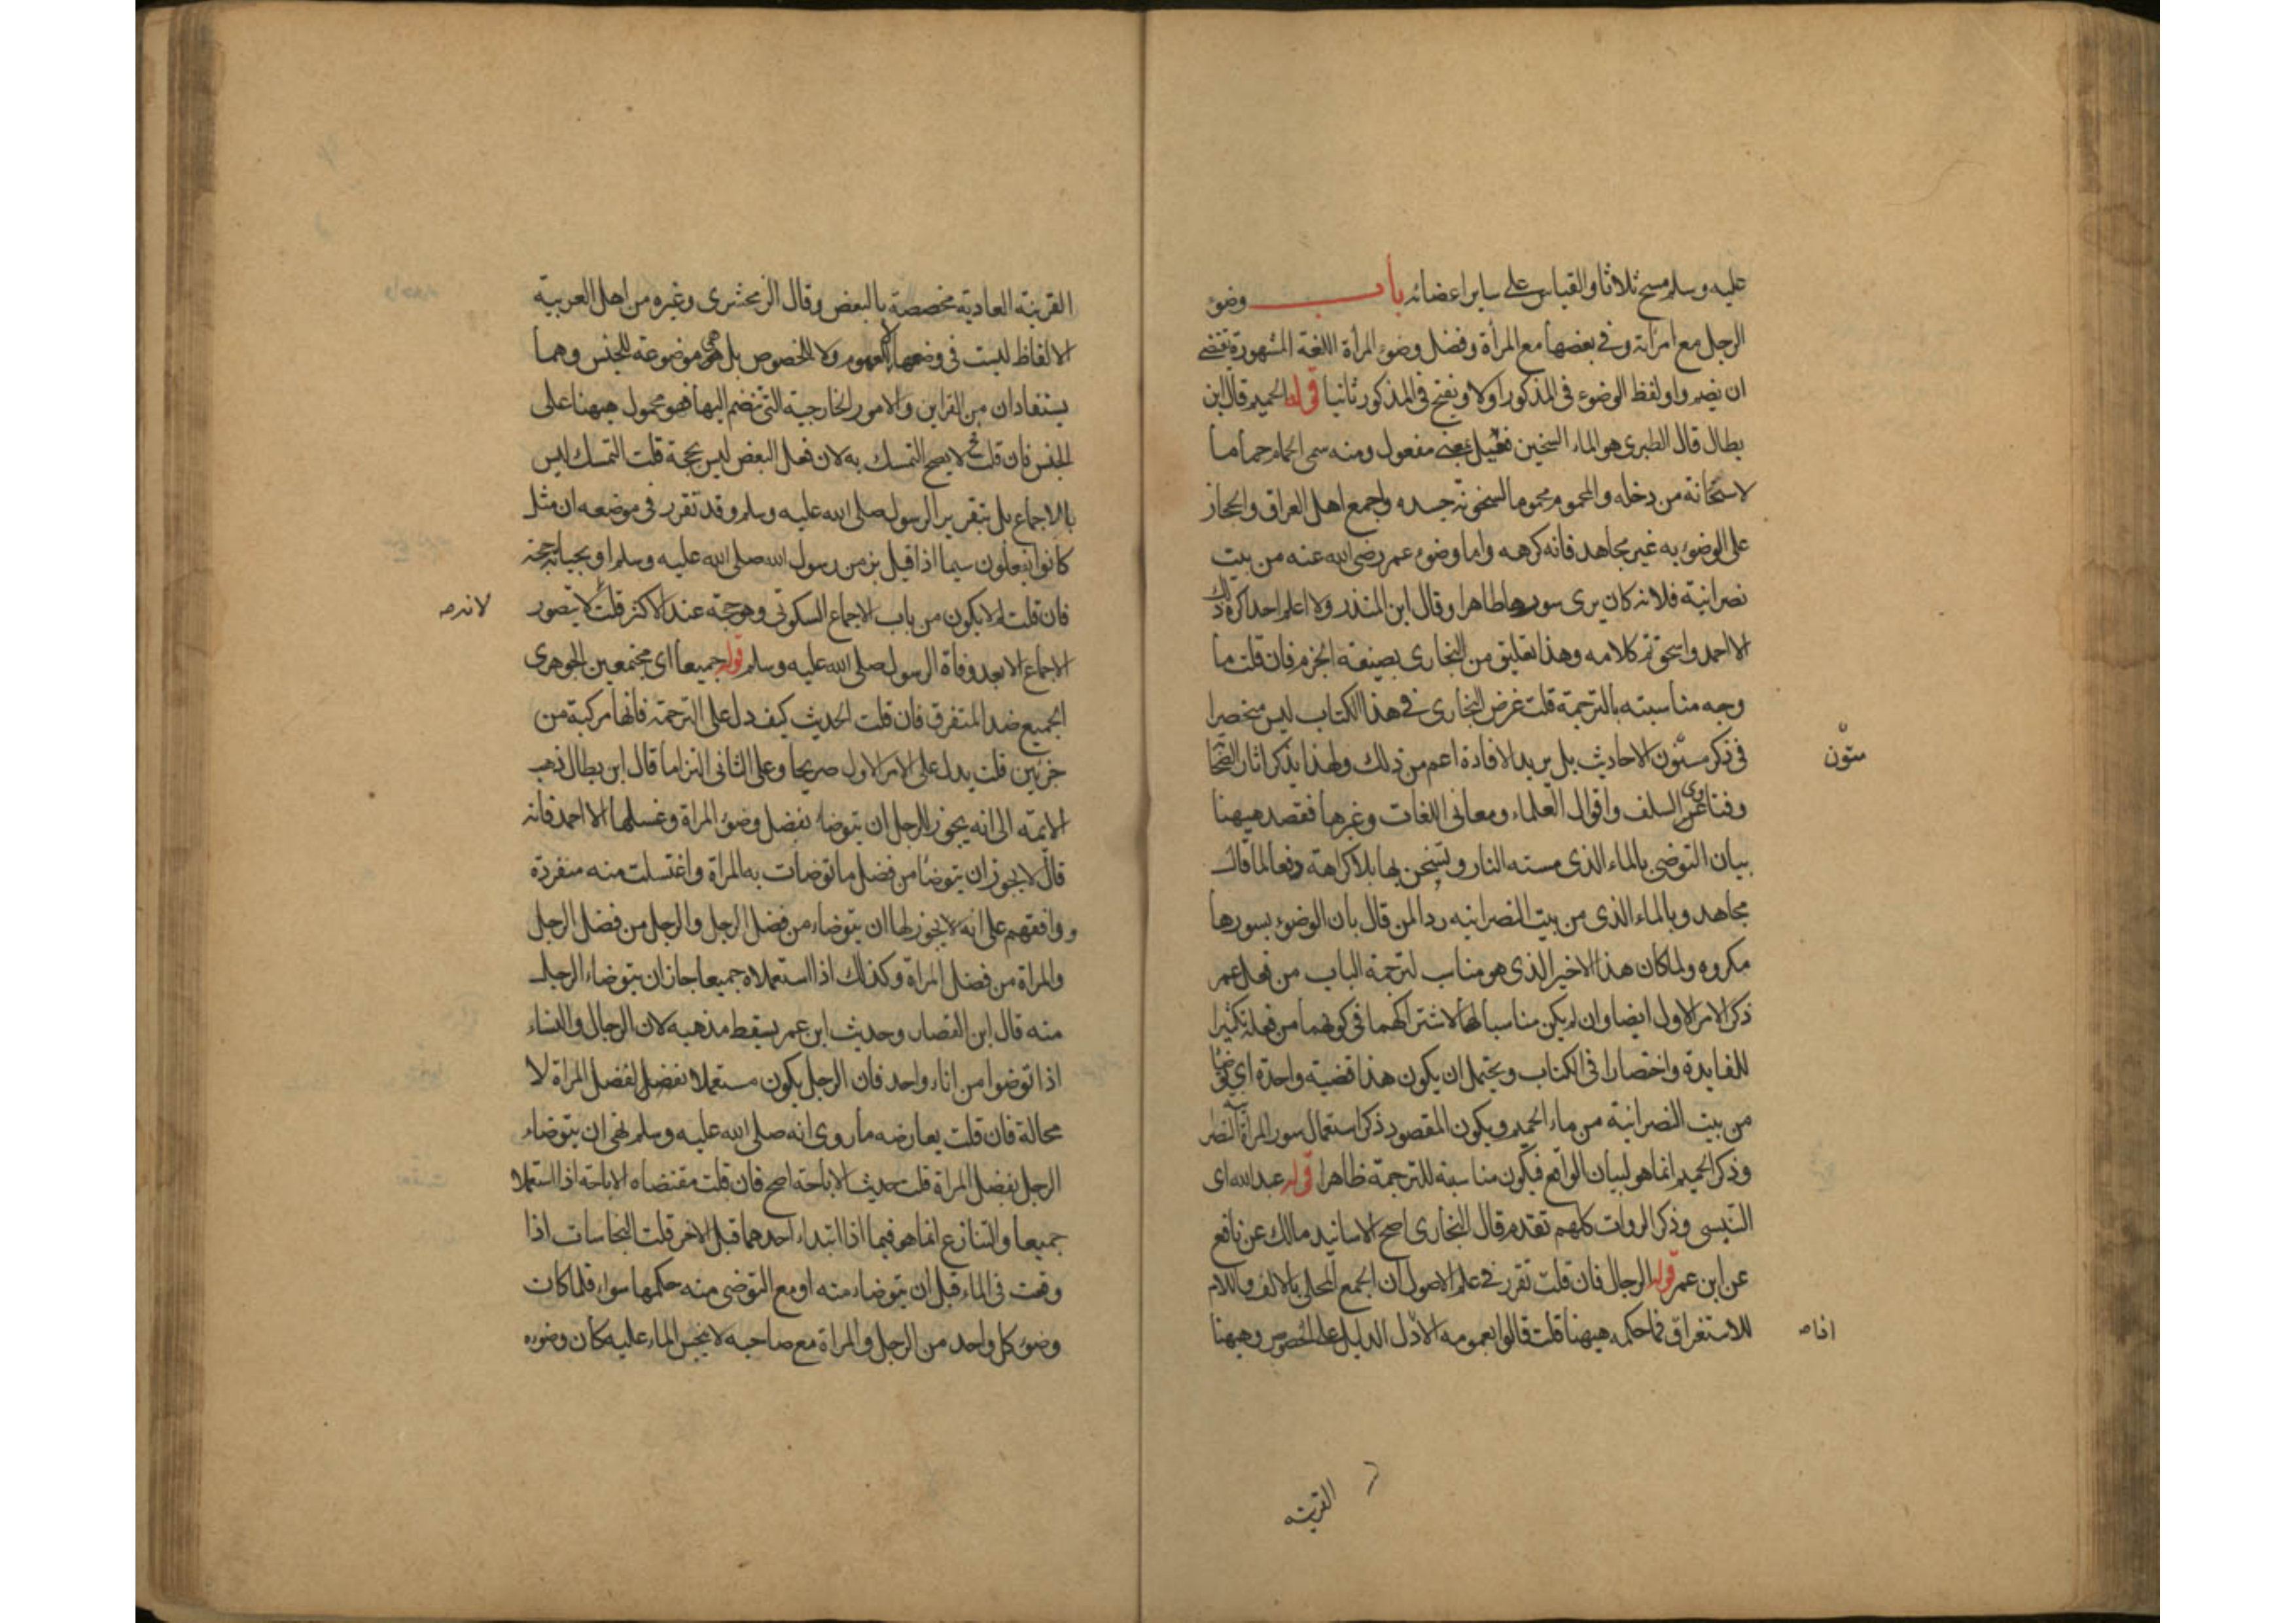 عليه وسلم مسح ثلاثا والقياس على ساير اعضائه باب وضوء
الرجل مع امراته وفى بعضها مع المرأة وفضل وضوء المرأة اللغة المشهورة تقتضى
ان يضم واو لفظ الوضوء فى المذكور اولا ويفتح فى المذكور ثانيا قوله الحميم قال ابن
بطال قال الطبرى هو الماء السخين فعيل بمعنى مفعول ومنه سمى الحمام حماما
لاسخانه من دخله والمحموم محموما لسخونة جسده واجمع اهل العراق والحجاز
على الوضوء به غير مجاهد فانه كرهه واما وضوء عمر رضى الله عنه من بيت
نصرانية فلانه كان يرى سورها طاهرا وقال ابن المنذر ولا اعلم احدا كره ذلك
الا احمد واسحق تم كلامه وهذا تعليق من البخارى بصيغة الجزم فان قلت ما
وجه مناسبته بالترجمة قلت غرض البخارى فى هذا الكتاب ليس منحصرا
متون
فى ذكر متون الاحاديث بل يريد الافادة اعم من ذلك ولهذا يذكر اثار الصحابة
وفتاوى السلف واقوال العلماء ومعانى اللغات وغيرها فقصد هيهنا
بيان التوضى بالماء الذى مسته النار وتسخن بها بلا كراهة دفعا لما قال
مجاهد وبالماء الذى من بيت النصرانيه ردا لمن قال بان الوضوء بسورها
مكروه ولما كان هذا الاخير الذى هو مناسب لترجمة الباب من فعل عمر
ذكر الامر الاول ايضا وان لم يكن مناسبا لها لاشتراكهما فى كونهما من فعله تكثيرا
للفايدة واختصارا فى الكتاب ويحتمل ان يكون هذا قضية واحدة اى توضأ
من بيت النصرانية من ماء الحميم ويكون المقصود ذكر استعمال سور المرأة النصرانية
وذكر الحميم انما هو لبيان الواقع فيكون مناسبة للترجمة ظاهرا قوله عبد الله اى
التنيسى وذكر الروات كلهم تقدم قال البخارى اصح الاسانيد مالك عن نافع
عن ابن عمر قوله الرجال فان قلت تقرر فى علم الاصول ان الجمع المحلى بالالف واللام
للاستغراق فما حكمه هيهنا قلت قالوا بعمومه الا اذا دل الدليل على الخصوص وهيهنا
القرينه
القرينة العادية مخصصة بالبعض وقال الزمخشرى وغيره من اهل العربية
الالفاظ ليست فى وضعها لا للعموم ولا للخصوص بل هى موضوعة للجنس وهما
يستفادان من القراين والامور الخارجية التى تنضم اليها فهو محمول هيهنا على
الجنس فان قلت فح لا يصح التمسك به لان فعل البعض ليس بحجة قلت التمسك ليس
بالاجماع بل بتقرير الرسول صلى الله عليه وسلم وقد تقرر فى موضعه ان مثل
كانوا يفعلون سيما اذا قيل بزمن رسول الله صلى الله عليه وسلم او بحياته حجة
لانه صح
فان قلت لم لا يكون من باب الاجماع السكوتى وهو حجة عند الاكثر قلت لا يتصور
الاجماع الا بعد وفاة الرسول صلى الله عليه وسلم قوله جميعا اى مجتمعين الجوهرى
الجميع ضد المتفرق فان قلت الحديث كيف دل على الترجمة فانها مركبة من
جزئين قلت يدل على الامر الاول صريحا وعلى الثانى التزاما قال ابن بطال ذهب
الايمه الى انه يجوز للرجل ان يتوضا بفضل وضوء المراة وغسلها الا احمد فانه
قال لا يجوز ان يتوضا من فضل ما توضات به المراة واغتسلت منه منفردة
ووافقهم على انه لا يجوز لها ان يتوضاء من فضل الرجل والرجل من فضل الرجل
والمراة من فضل المراة وكذلك اذا استعملاه جميعا جاز ان يتوضاء الرجل
منه قال ابن القصار وحديث ابن عمر يسقط مذهبه لان الرجال والنساء
اذا توضوا من اناء واحد فان الرجل يكون مستعملا لفضل المراة لا
محالة فان قلت يعارضه ما روى انه صلى الله عليه وسلم نهى ان يتوضاء
الرجل بفضل المراة قلت حديث الاباحة اصح فان قلت مقتضاه الاباحة اذا استعملا
جميعا والتنازع انما هو فيما اذا ابتداء احدهما قبل الاخر قلت النجاسات اذا
وقعت فى الماء قبل ان يتوضاء منه او مع التوضى منه حكمها سواء فلما كان
وضوء كل واحد من الرجل والمراة مع صاحبه لا ينجس الماء عليه كان وضوءه